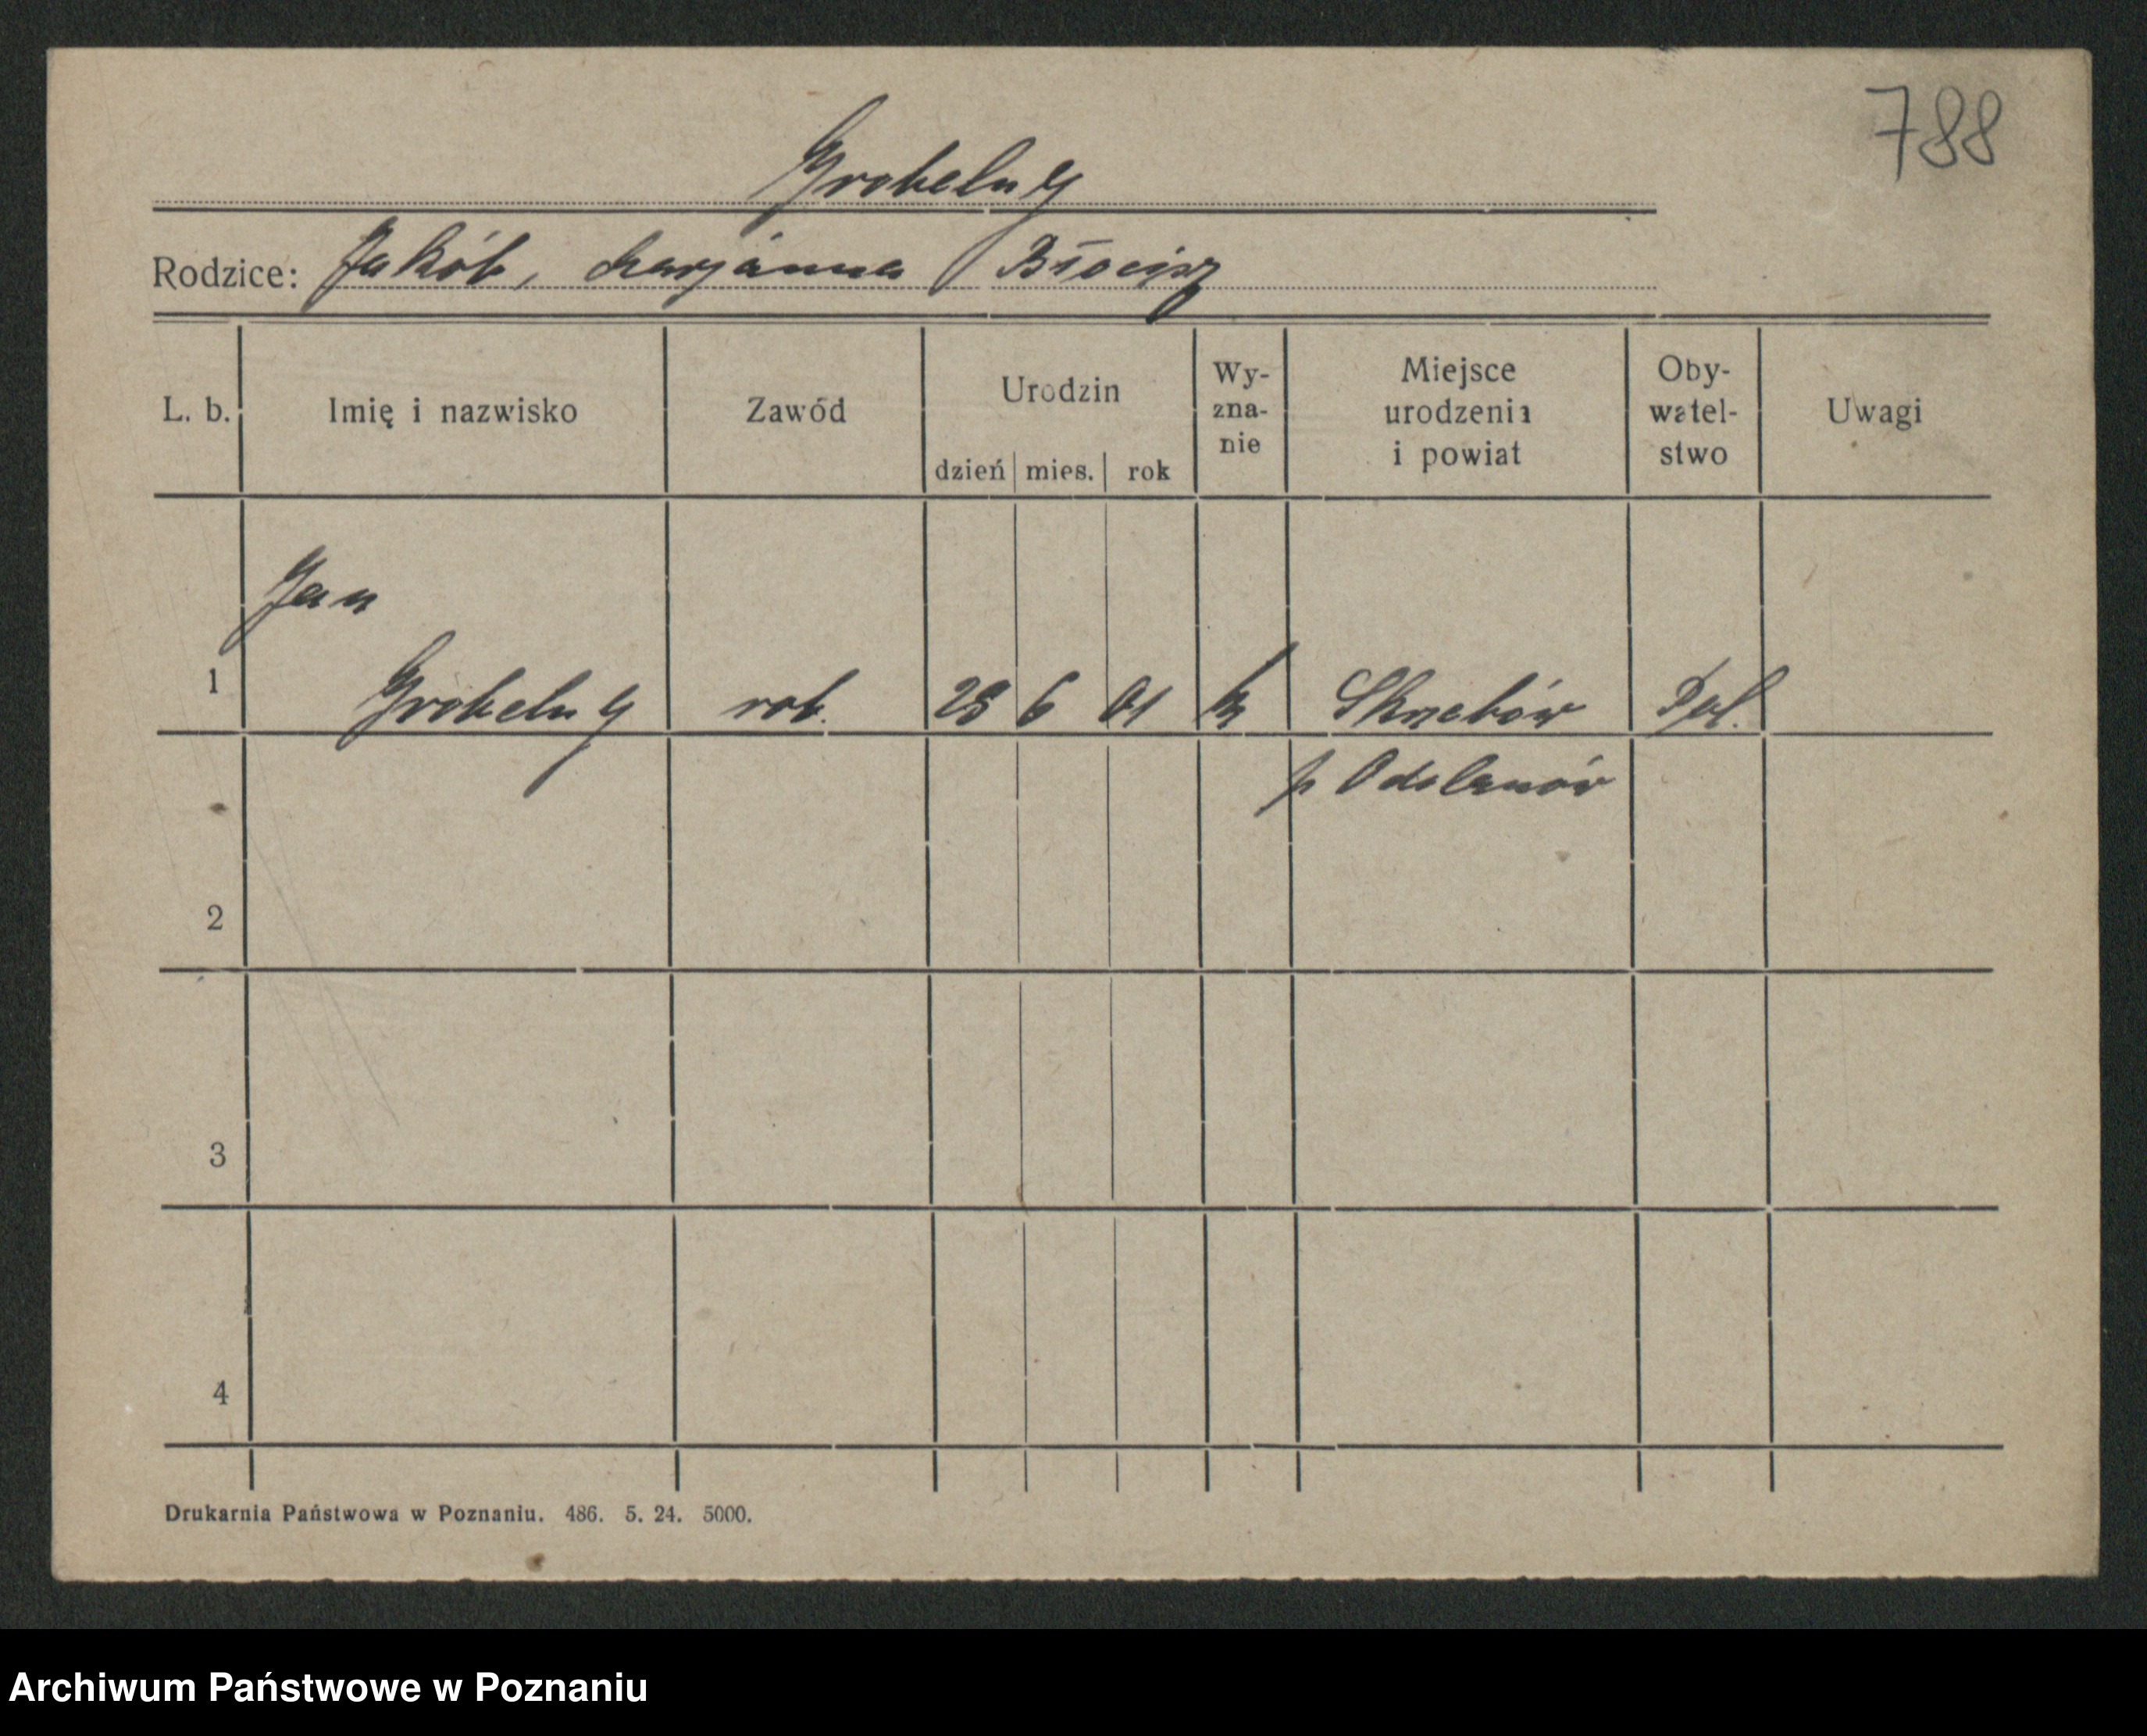 788
Grobelny
Rodzice: Jakób, Marjanna / Błocisz
L. b. Imię i nazwisko Zawód Urodzin dzień mies. rok Wy-zna-nie Miejsce urodzenia i powiat Oby-watel-stwo Uwagi
Jan
1 Grobelny rob. 23 6 01 k Skrzebów Pol.
p Odolanów
2
3
4
Drukarnia Państwowa w Poznaniu. 486. 5. 24. 5000.
Archiwum Państwowe w Poznaniu